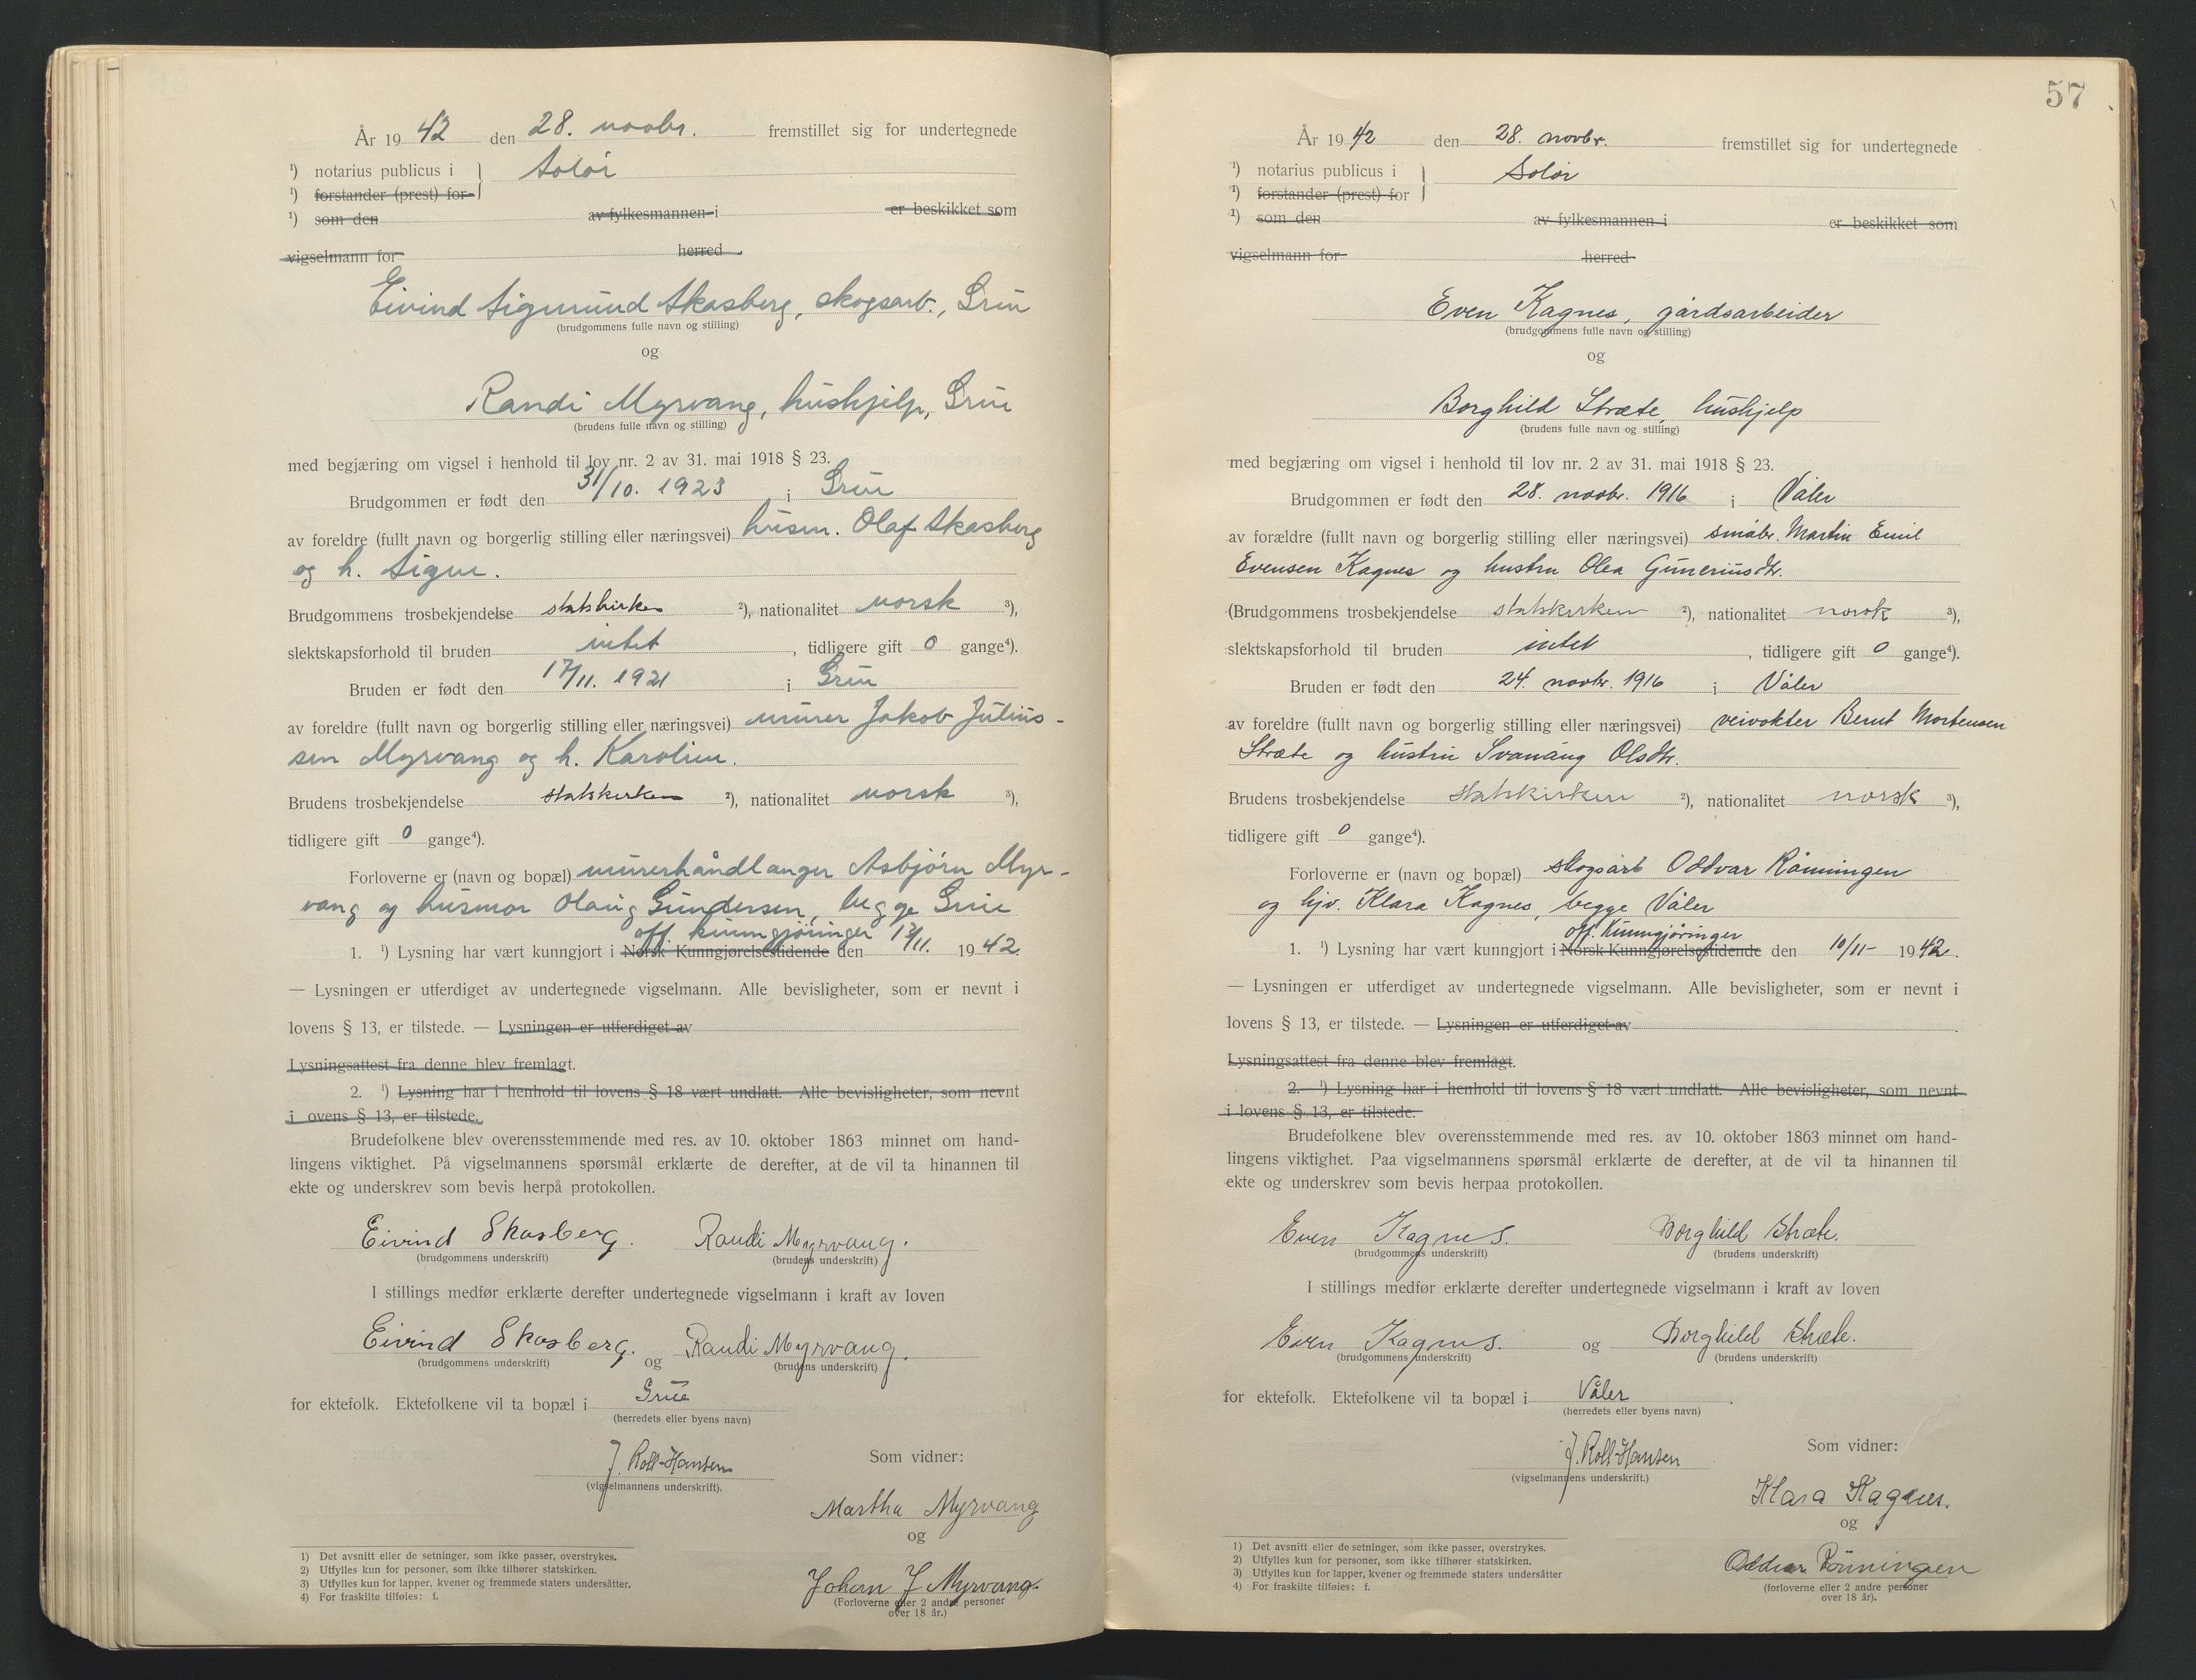 År 19 42 den 28. novbr. fremstillet sig for undertegnede
¹) notarius publicus i Solør
¹) forstander (prest) for
¹) som den av fylkesmannen i er beskikket som
vigselmann for herred
Eivind Sigmund Skasberg, skogsarb., Grue
(brudgommens fulle navn og stilling)
og
Randi Myrvang, hushjelp, Grue
(brudens fulle navn og stilling)
med begjæring om vigsel i henhold til lov nr. 2 av 31. mai 1918 § 23.
Brudgommen er født den 31/10. 1923 i Grue
av foreldre (fullt navn og borgerlig stilling eller næringsvei) husm. Olaf Skasberg
og h. Signe.
Brudgommens trosbekjendelse statskirken ²), nationalitet norsk ³),
slektskapsforhold til bruden intet, tidligere gift 0 gange⁴).
Bruden er født den 17/11. 1921 i Grue
av foreldre (fullt navn og borgerlig stilling eller næringsvei) murer Jakob Julius-
sen Myrvang og h. Karoline.
Brudens trosbekjendelse statskirken ²), nationalitet norsk ³),
tidligere gift 0 gange⁴).
Forloverne er (navn og bopæl) murerhåndlanger Asbjørn Myr-
vang og husmor Olaug Gundersen, begge Grue
off. kunngjøringer
1. ¹) Lysning har vært kunngjort i Norsk Kunngjørelsestidende den 12/11. 19 42.
— Lysningen er utferdiget av undertegnede vigselmann. Alle bevisligheter, som er nevnt i
lovens § 13, er tilstede. — Lysningen er utferdiget av
Lysningsattest fra denne blev fremlagt.
2. ¹) Lysning har i henhold til lovens § 18 vært undlatt. Alle bevisligheter, som nevnt
i ovens § 13, er tilstede.
Brudefolkene blev overensstemmende med res. av 10. oktober 1863 minnet om hand-
lingens viktighet. På vigselmannens spørsmål erklærte de derefter, at de vil ta hinannen til
ekte og underskrev som bevis herpå protokollen.
Eivind Skasberg. Randi Myrvang.
(brudgommens underskrift) (brudens underskrift)
I stillings medfør erklærte derefter undertegnede vigselmann i kraft av loven
Eivind Skasberg. og Randi Myrvang.
(brudgommens underskrift) (brudens underskrift)
for ektefolk. Ektefolkene vil ta bopæl i Grue
(herredets eller byens navn)
Som vidner:
J. Roll-Hansen
(vigselmannens underskrift).
Martha Myrvang
og
Johan J Myrvang.
(Forloverne eller 2 andre personer
over 18 år.)
1) Det avsnitt eller de setninger, som ikke passer, overstrykes.
2) Utfylles kun for personer, som ikke tilhører statskirken.
3) Utfylles kun for lapper, kvener og fremmede staters undersåtter.
4) For fraskilte tilføies: f.
57
År 19 42 den 28. novbr. fremstillet sig for undertegnede
¹) notarius publicus i Solør
¹) forstander (prest) for
¹) som den av fylkesmannen i er beskikket som
vigselmann for herred
Even Kagnes, gårdsarbeider
(brudgommens fulle navn og stilling)
og
Borghild Stræte, hushjelp
(brudens fulle navn og stilling)
med begjæring om vigsel i henhold til lov nr. 2 av 31. mai 1918 § 23.
Brudgommen er født den 28. novbr. 1916 i Våler
av forældre (fullt navn og borgerlig stilling eller næringsvei) småbr. Martin Emil
Evensen Kagnes og hustru Olea Guneriusdtr.
(Brudgommens trosbekjendelse statskirken ²), nationalitet norsk ³),
slektskapsforhold til bruden intet, tidligere gift 0 gange⁴).
Bruden er født den 24. novbr. 1916 i Våler
av foreldre (fullt navn og borgerlig stilling eller næringsvei) veivokter Bernt Mortensen
Stræte og hustru Svanaug Olsdtr.
Brudens trosbekjendelse statskirken ²), nationalitet norsk ³),
tidligere gift 0 gange⁴).
Forloverne er (navn og bopæl) skogsarb Oddvar Rønningen
og hjv. Klara Kagnes, begge Våler
off. Kunngjøringer
1. ¹) Lysning har vært kunngjort i Norsk Kunngjørelsestidende den 10/11- 19 42.
— Lysningen er utferdiget av undertegnede vigselmann. Alle bevisligheter, som er nevnt i
lovens § 13, er tilstede. — Lysningen er utferdiget av
Lysningsattest fra denne blev fremlagt.
2. ¹) Lysning har i henhold til lovens § 18 vært undlatt. Alle bevisligheter, som nevnt
i lovens § 13, er tilstede.
Brudefolkene blev overensstemmende med res. av 10. oktober 1863 minnet om hand-
lingens viktighet. Paa vigselmannens spørsmål erklærte de derefter, at de vil ta hinannen til
ekte og underskrev som bevis herpaa protokollen.
Even Kagnes. Borghild Stræte.
(brudgommens underskrift) (brudens underskrift)
I stillings medfør erklærte derefter undertegnede vigselmann i kraft av loven
Even Kagnes. og Borghild Stræte.
(brudgommens underskrift) (brudens underskrift)
for ektefolk. Ektefolkene vil ta bopæl i Våler.
(herredets eller byens navn)
Som vidner:
J. Roll-Hansen
(vigselmannens underskrift.)
Klara Kagnes.
og
Oddvar Rønningen
(forloverne eller 2 andre personer
over 18 år).
1) Det avsnitt eller de setninger, som ikke passer, overstrykes.
2) Utfylles kun for personer, som ikke tilhører statskirken.
3) Utfylles kun for lapper, kvener og fremmede staters undersåtter
4) For fraskilte tilføies: f.